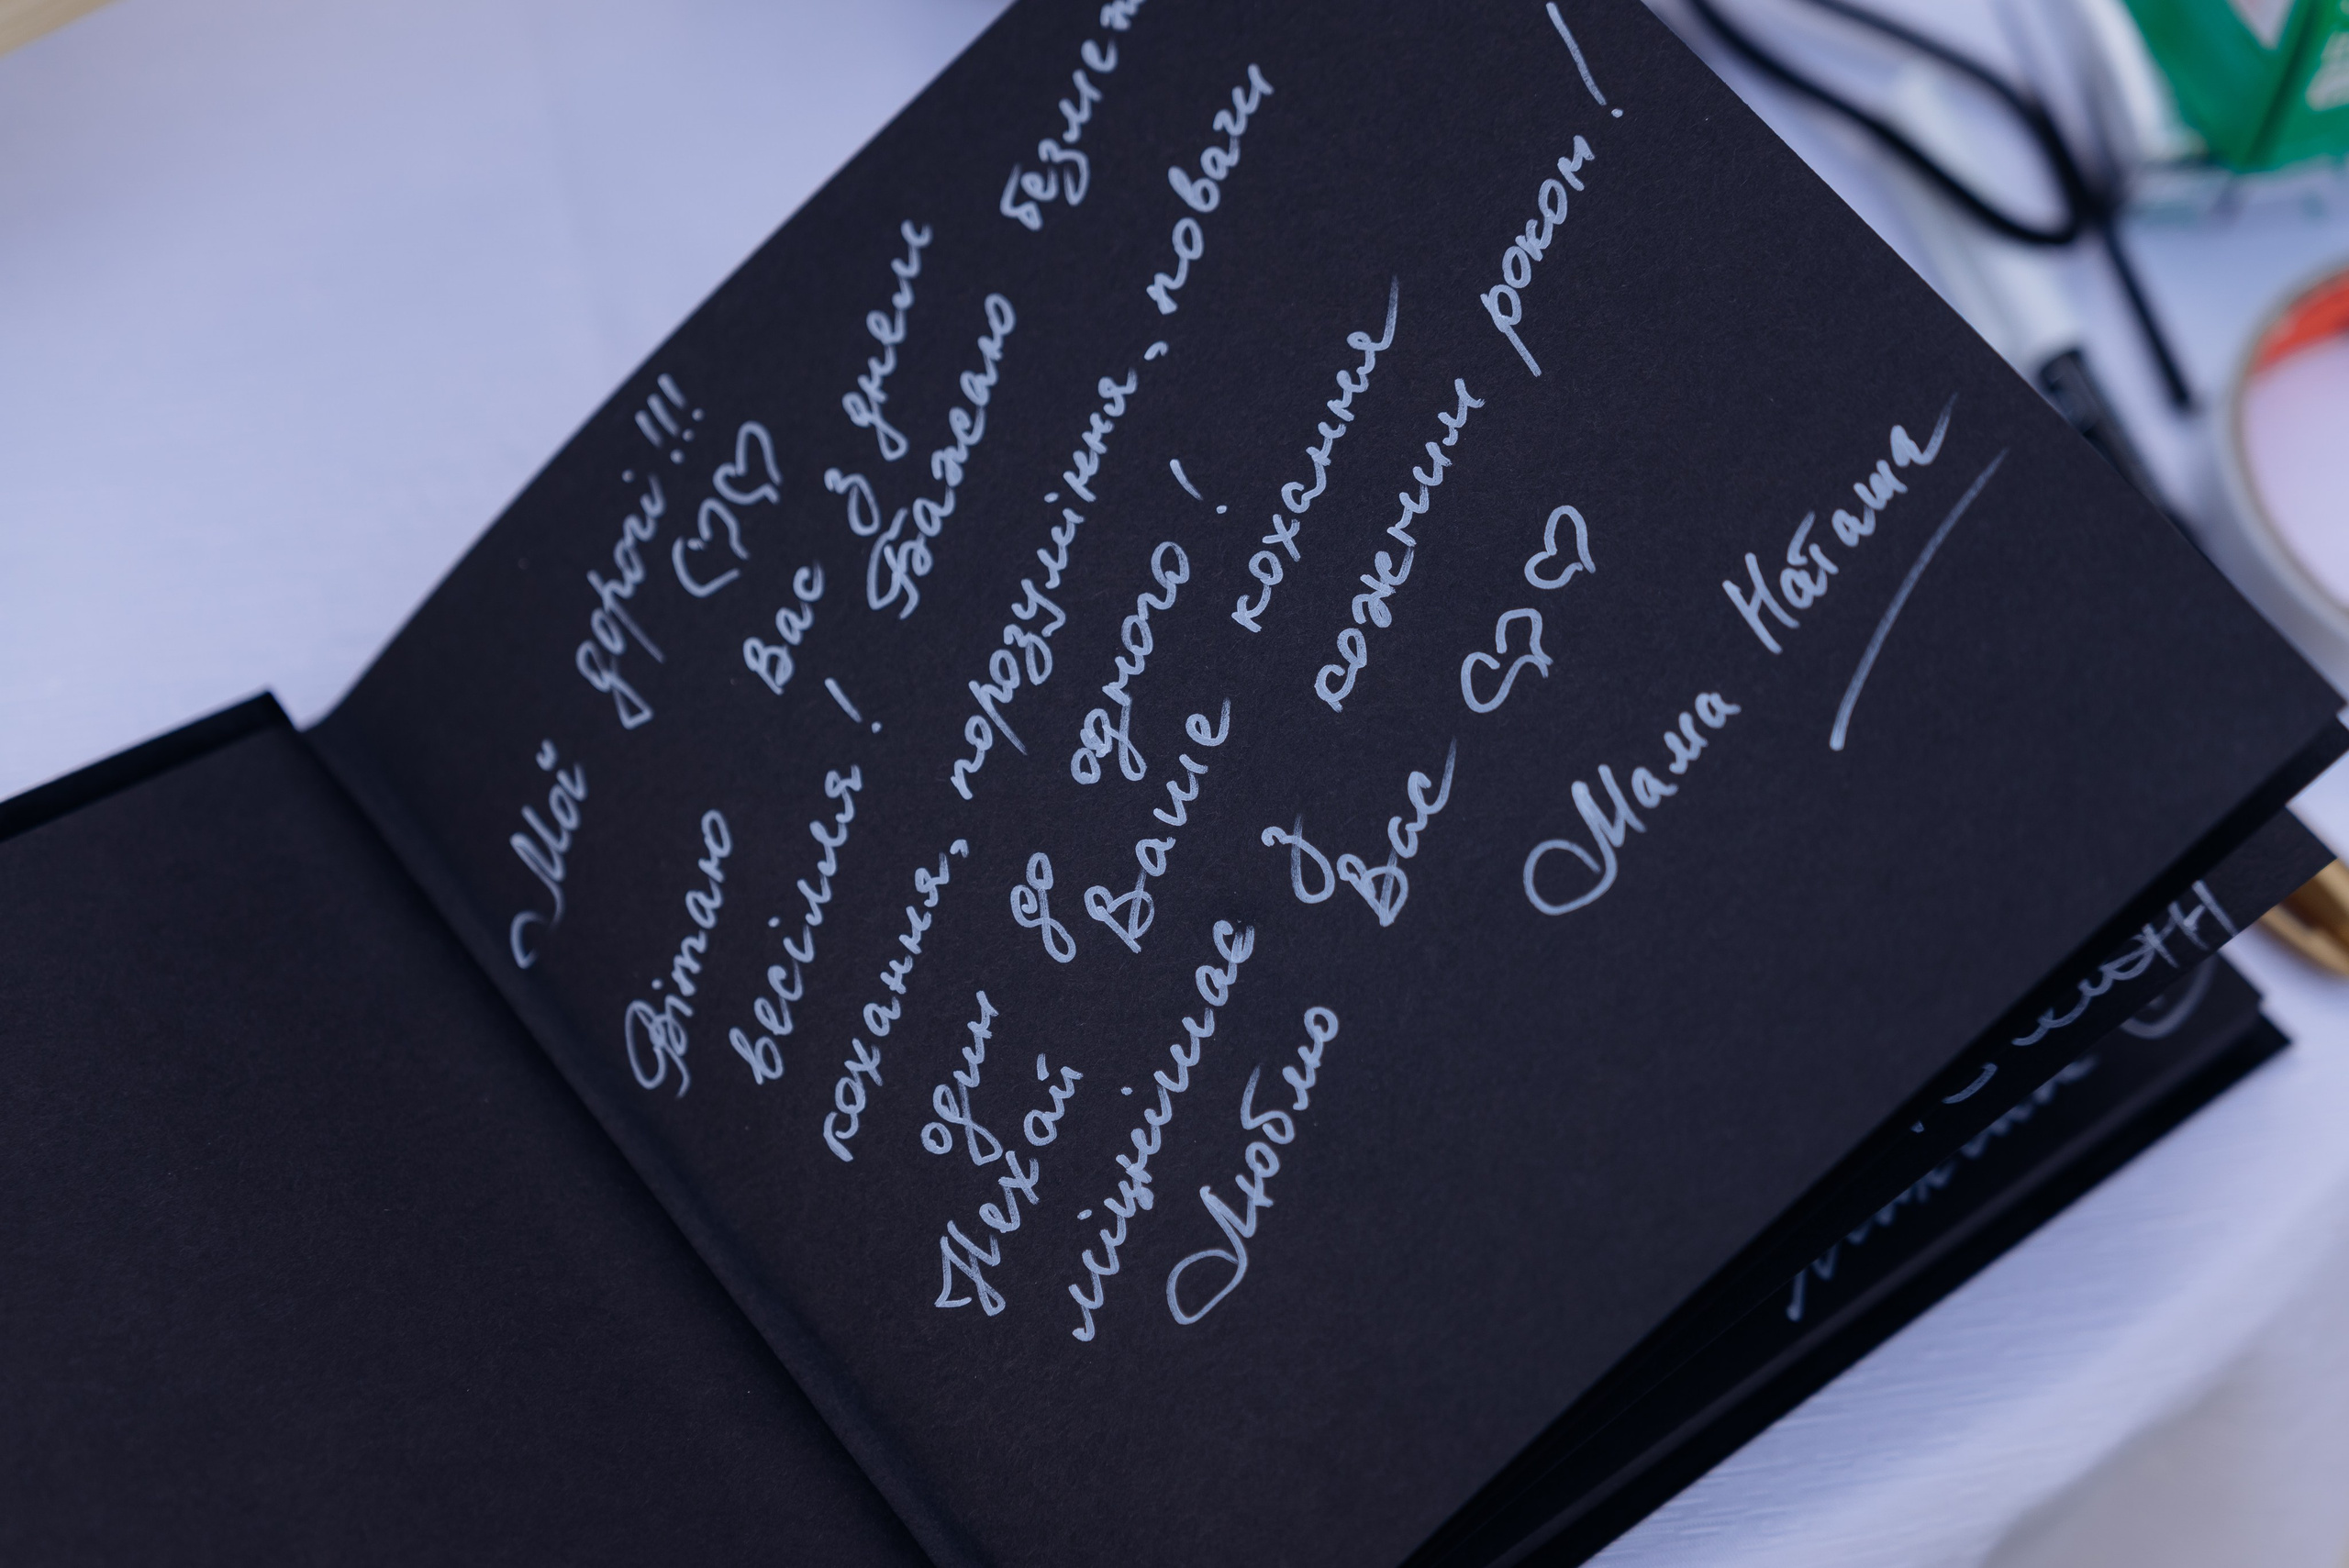 Мої дорогі!!!
Вітаю Вас з днем
весілля! Бажаю безмеж
кохання, порозуміння, поваги
один до одного!
Нехай Ваше кохання
міцнішає з кожним роком!
Люблю Вас
Мама Наташа